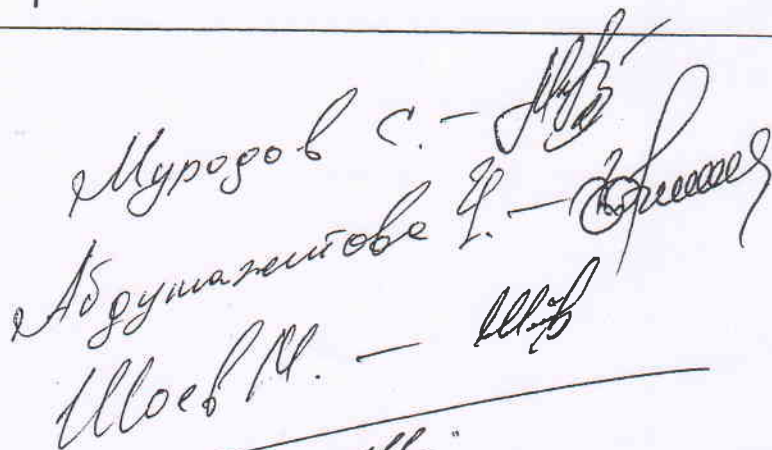 Муродов С. –
Абдумажитова Ч. –
Шоев М. –